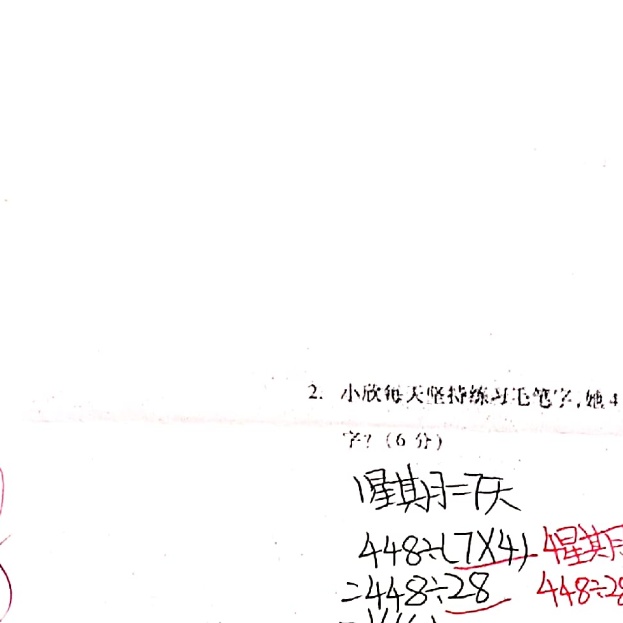 2. 小欣每天坚持练习毛笔字,她4
字?(6分)
1星期=7天
448÷(7×4) 4星期
=448÷28 448÷28